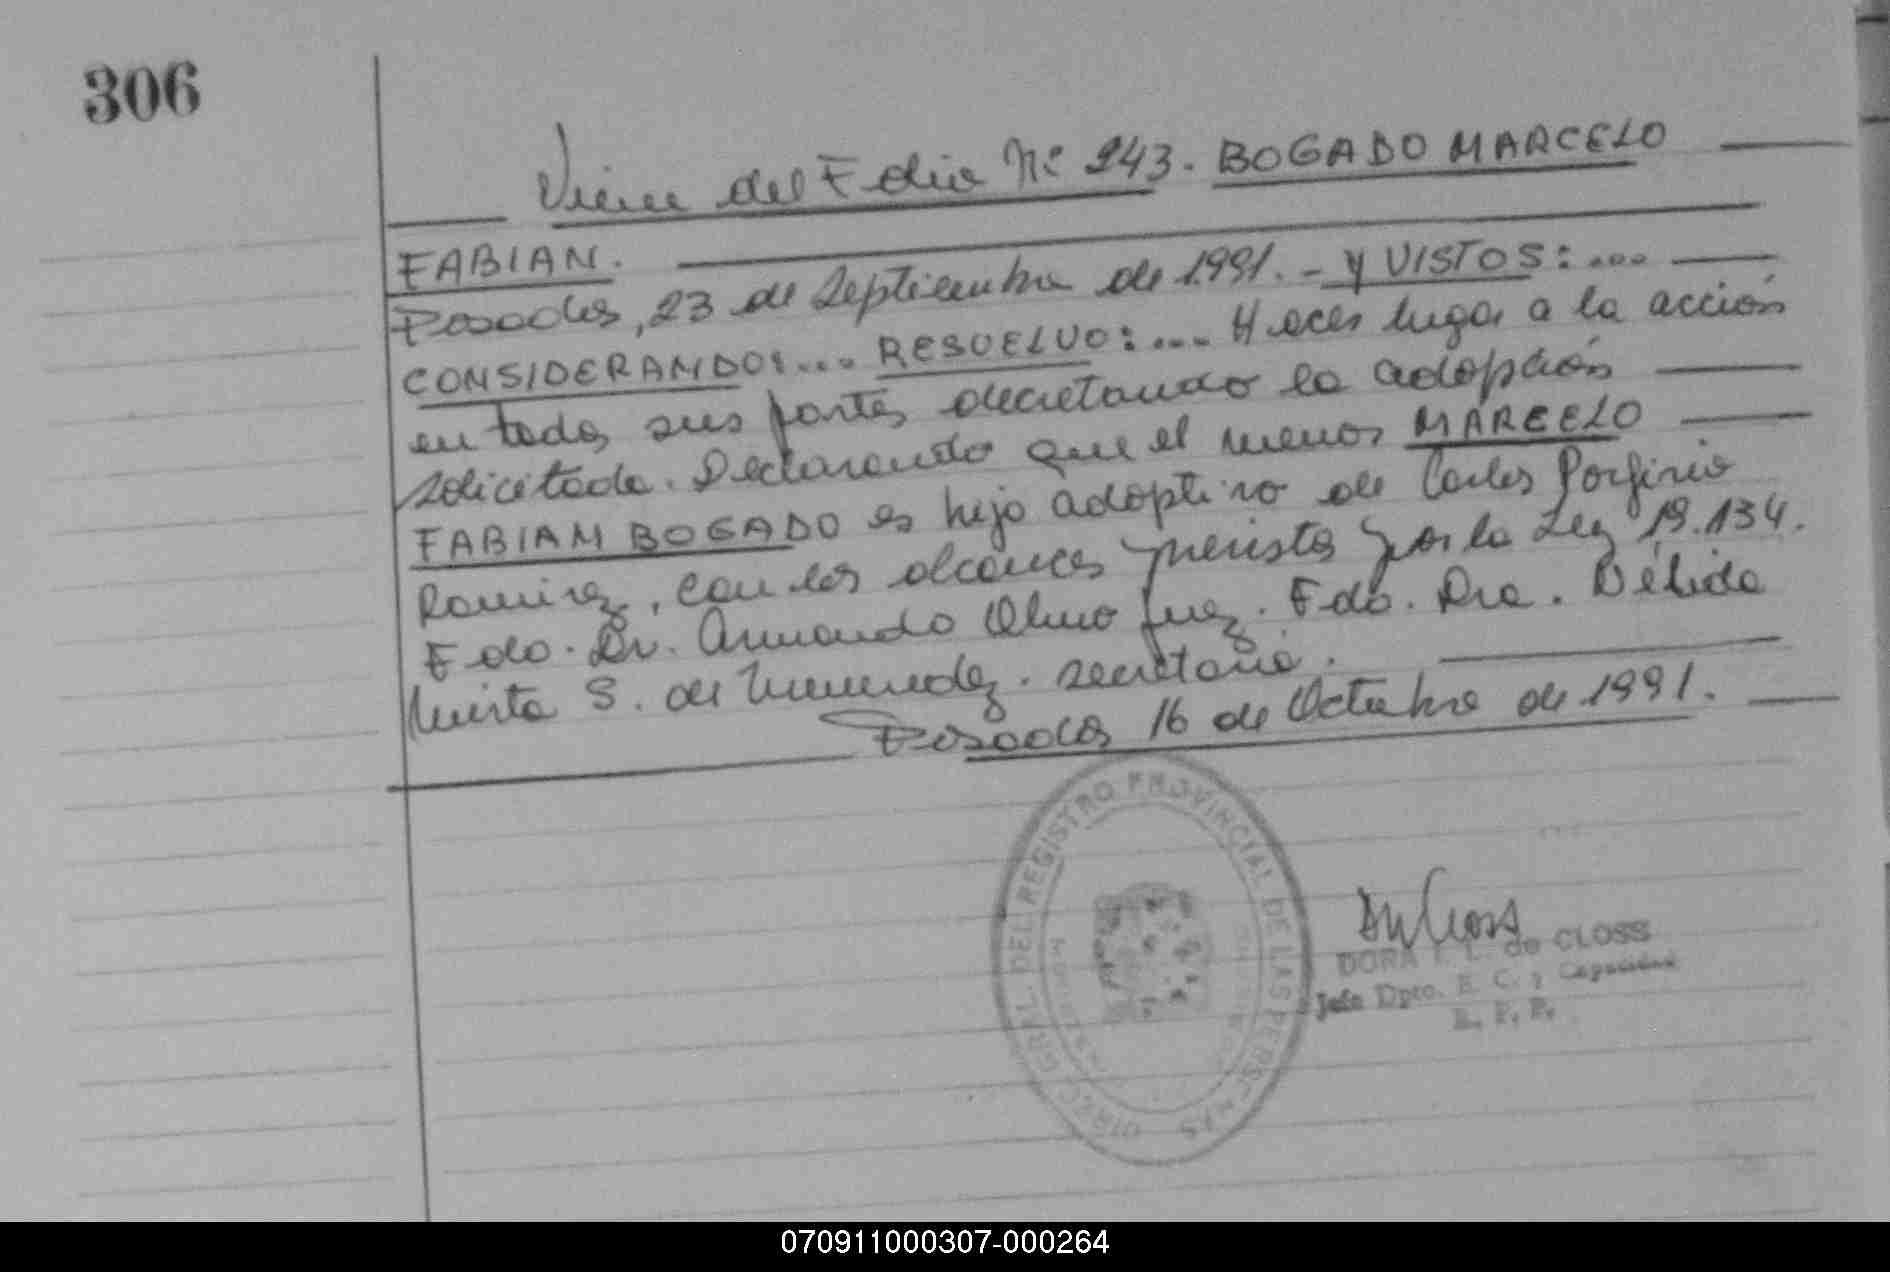 306
Viene del Folio Nº 243. BOGADO MARCELO
FABIAN.
Posadas, 23 de Septiembre de 1991. - Y VISTOS: ...
CONSIDERANDO: ... RESUELVO: ... Hacer lugar a la acción
en todas sus partes decretando la adopción
solicitada. Declarando que el menor MARCELO
FABIAN BOGADO es hijo adoptivo de Carlos Porfirio
Ramirez, con los alcances previstos por la Ley 19.134.
Fdo. Dr. Armando Olmo Juez. Fdo. Dra. Délida
Mirta S. de Menendez. secretaria.
Posadas 16 de Octubre de 1991.
DIREC. GRAL. DEL REGISTRO PROVINCIAL DE LAS PERSONAS
DORA de CLOSS
Jefe Dpto. E. C. y Capacidad
R. P. P.
070911000307-000264